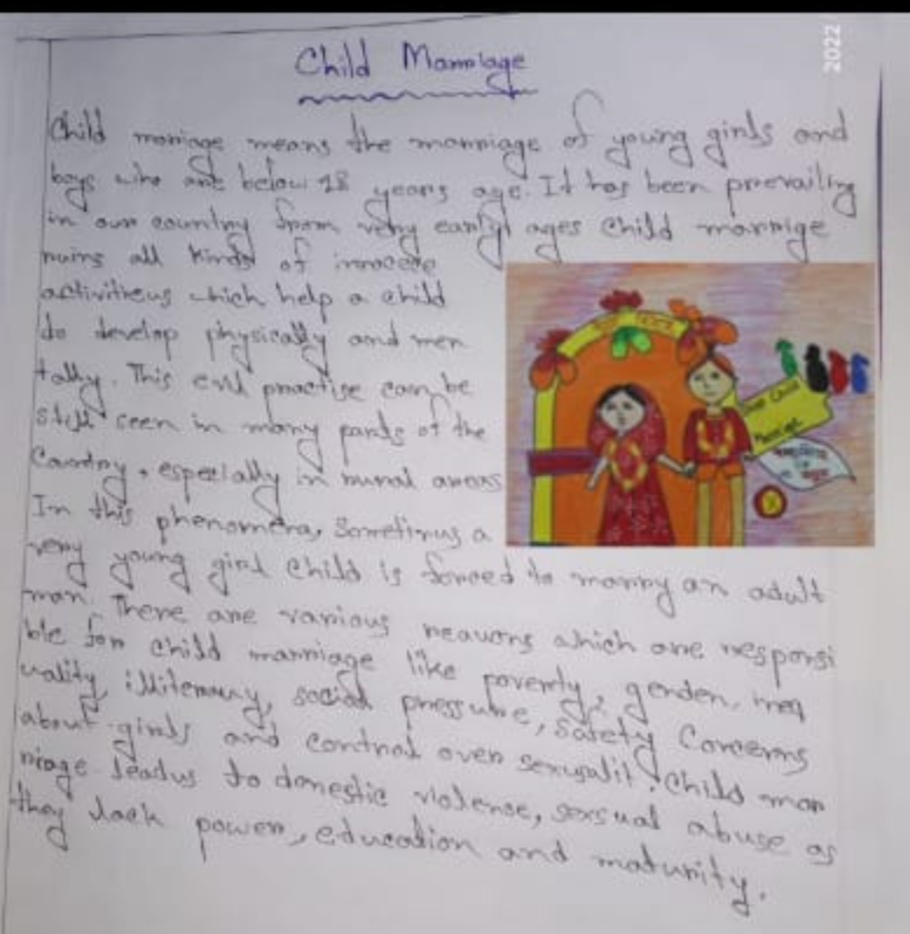 2022
Child Marriage
Child marriage means the marriage of young girls and
boys who are below 18 years age. It has been prevailing
in our country from very early ages child marrige
ruins all kinds of innocece
activitieus which help a child
do develop physically and men
tally. This evil practise can be
still seen in many parts of the
Country, especially in rural areas
In this phenomena, Sometimes a
very young girl child is forced to marry an adult
man. There are various reasons which are responsi
ble for child marriage like poverty, gender, ineq
uality, illiteracy, social pressure, safety Concerns
about girls and control over sexualit. Child mar
riage leadus to domestic violense, sexsual abuse as
they lack power, education and maturity.
Stop Child
Marriage